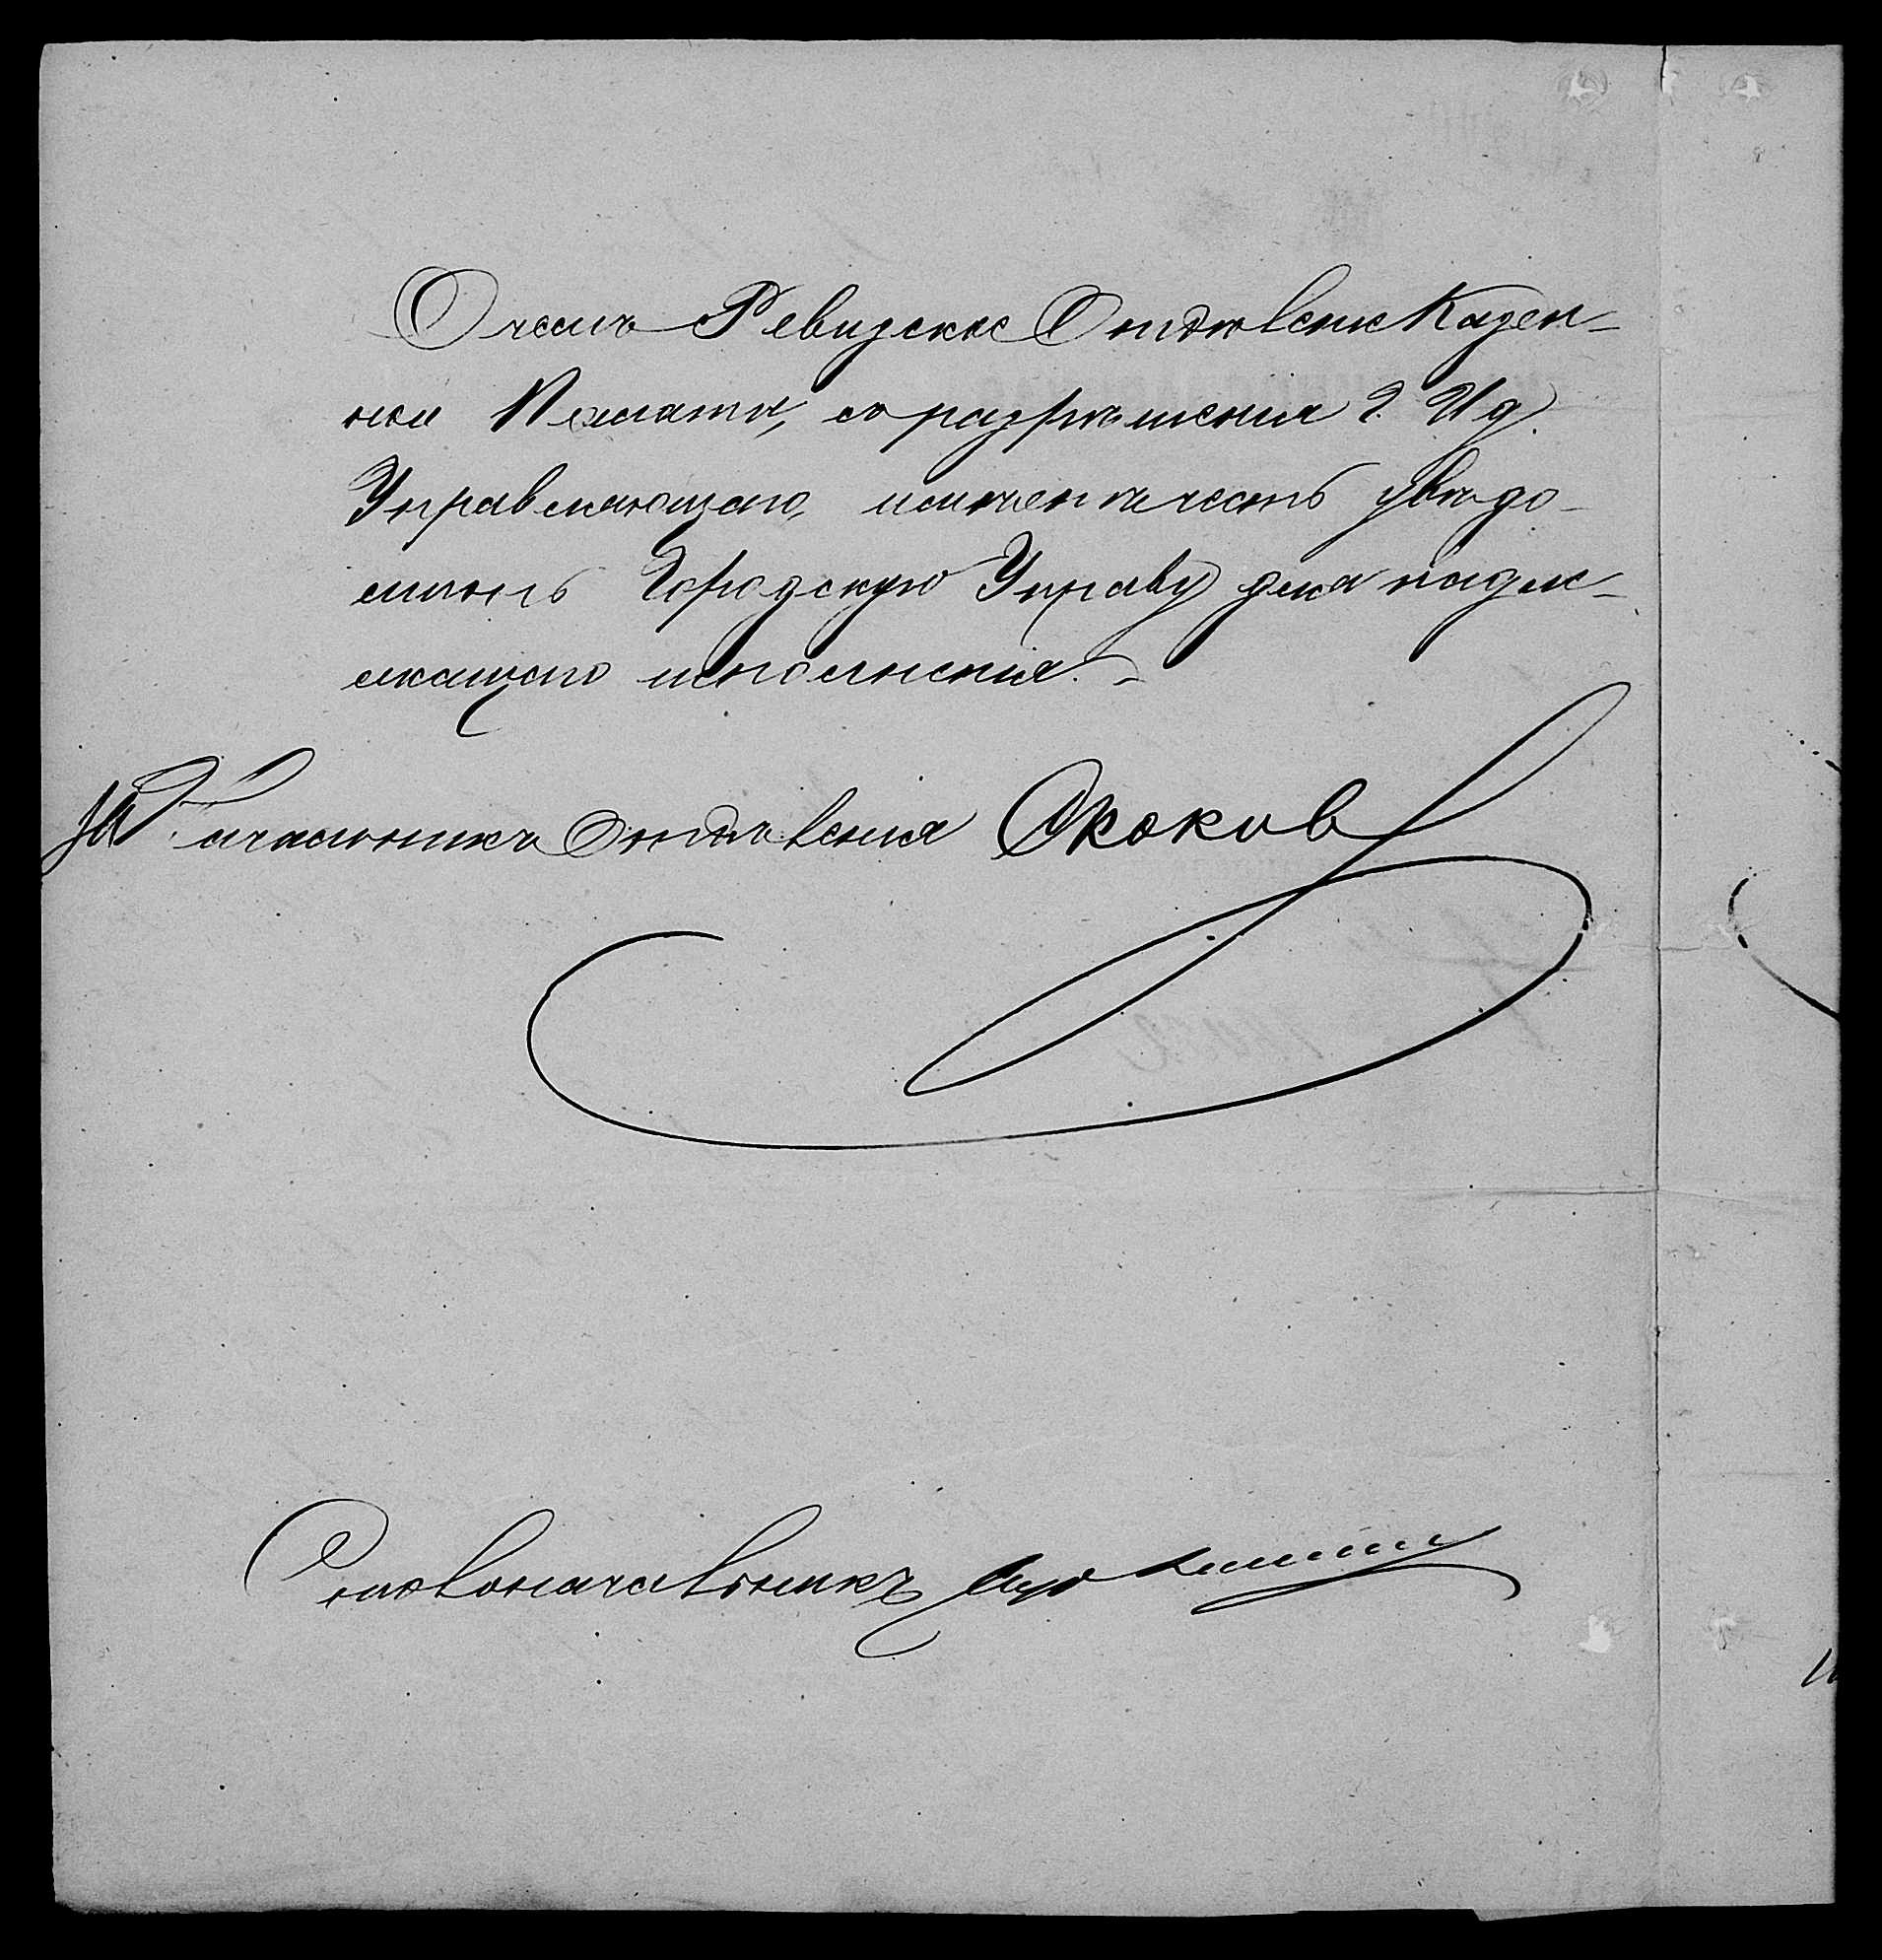 О чемъ Ревизское Отдѣленіе Казен-
ной Палаты, съ разрѣшенія Г. И д.
Управляющаго, имѣетъ честь увѣдо-
мить Городскую Управу для надле-
жащаго исполненія.
За Начальникъ Отдѣленія
Столоначальникъ